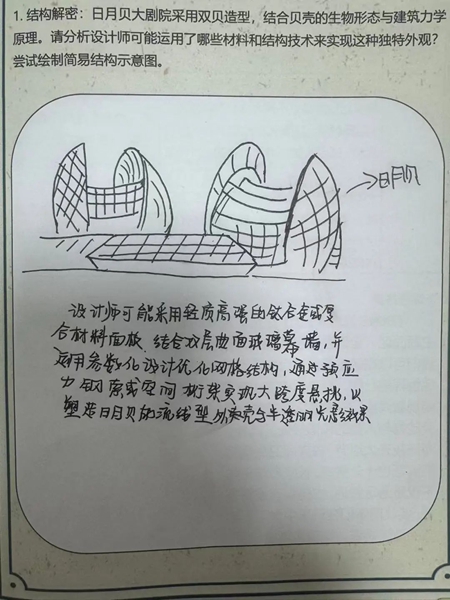 1. 结构解密：日月贝大剧院采用双贝造型，结合贝壳的生物形态与建筑力学
原理。请分析设计师可能运用了哪些材料和结构技术来实现这种独特外观？
尝试绘制简易结构示意图。
日月贝
设计师可能采用轻质高强的钛合金或复
合材料面板、结合双层曲面玻璃幕墙，并
运用参数化设计优化网格结构，通过预应
力钢索或空间桁架实现大跨度悬挑，以
塑造日月贝的流线型外壳与半透明光影效果